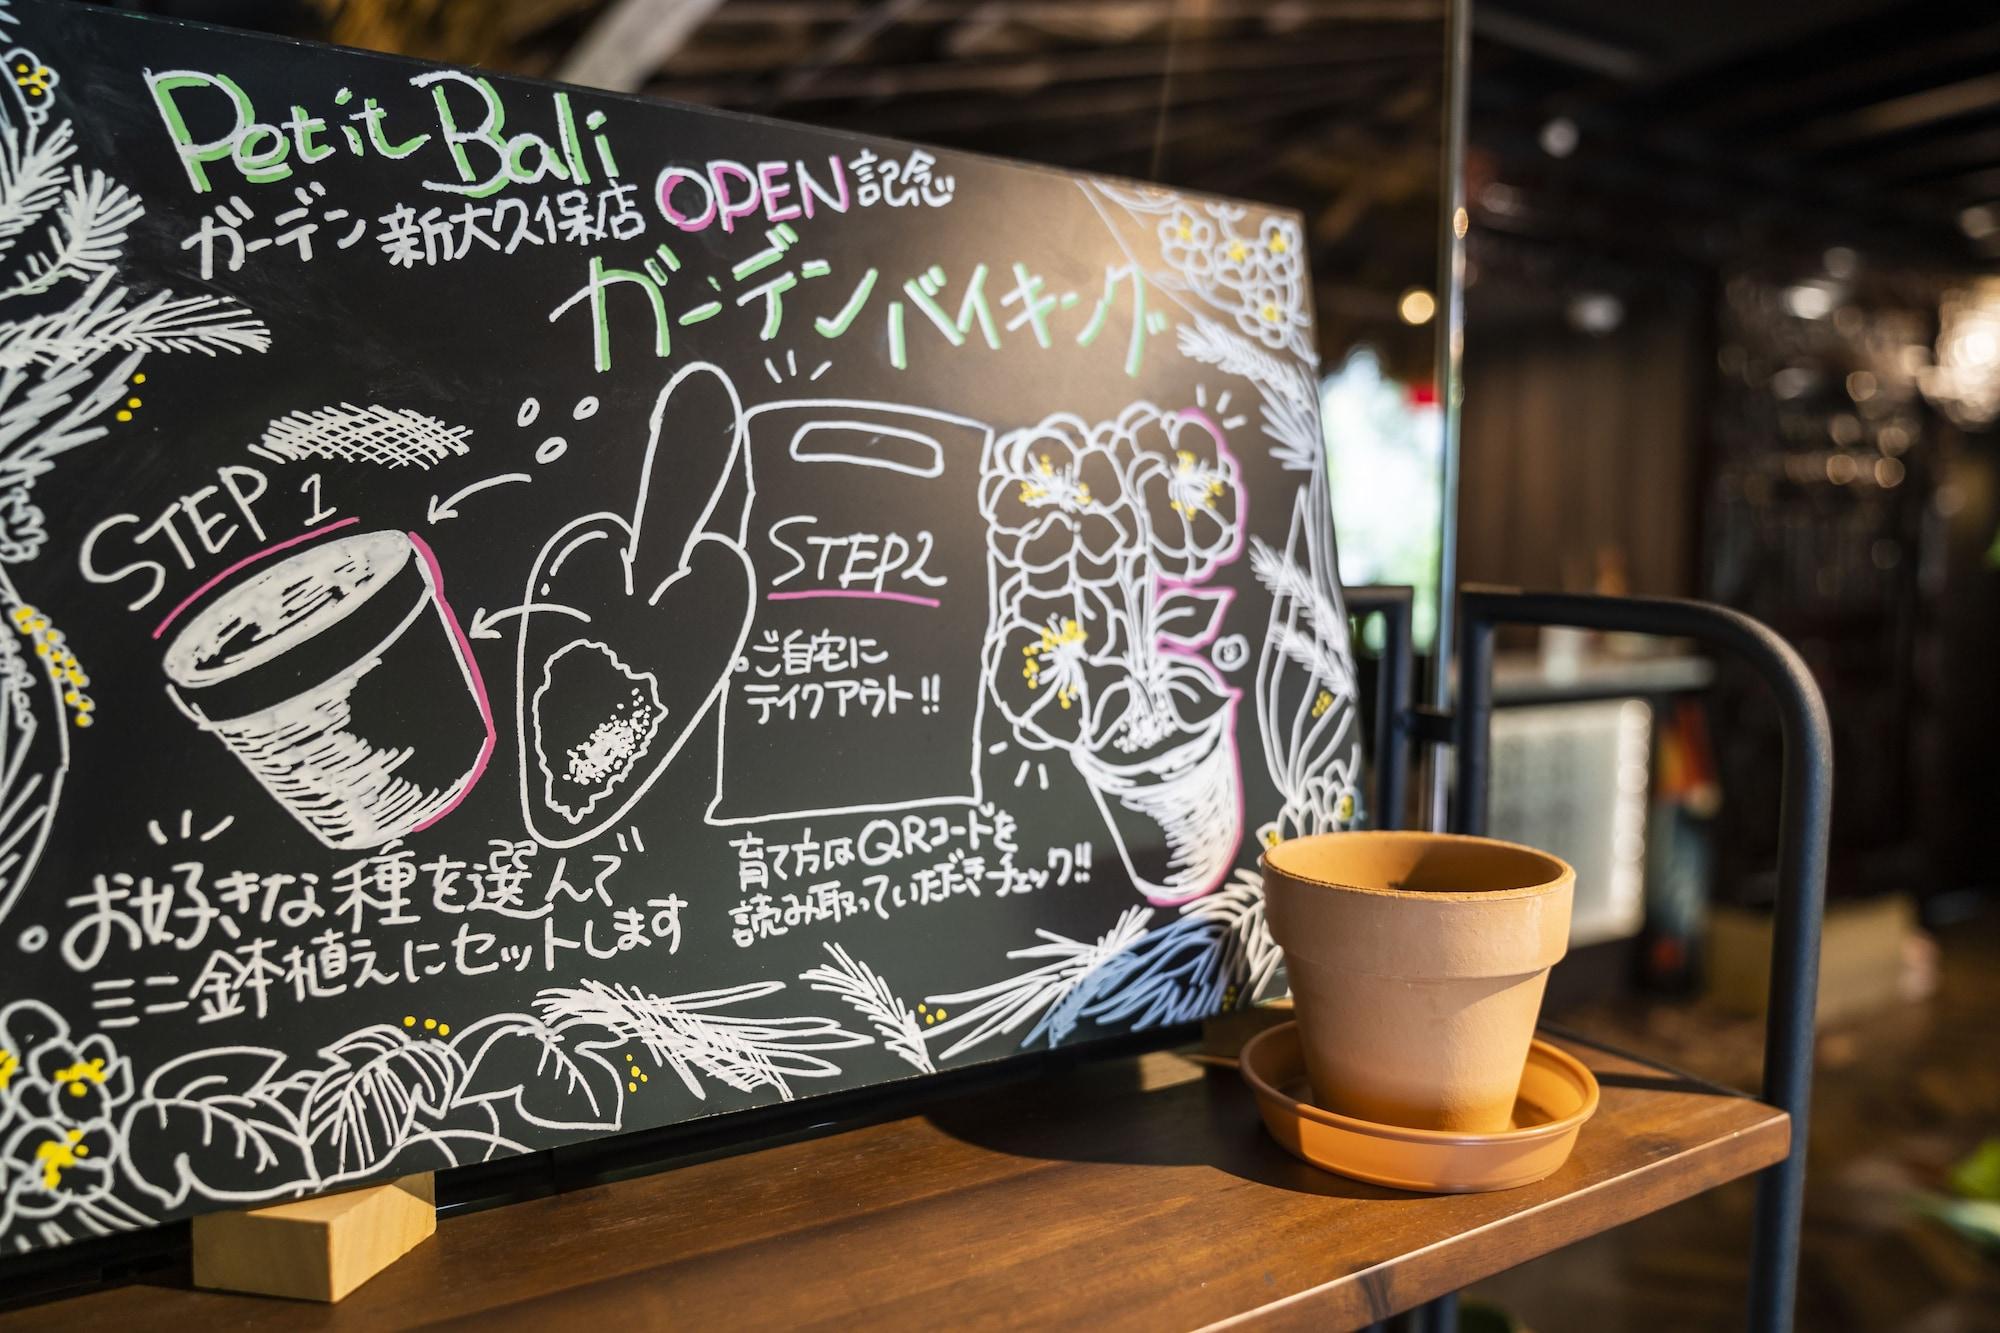 Petit Bali
ガーデン 新大久保店 OPEN 記念
ガーデンバイキング
STEP 1
お好きな種を選んで
ミニ鉢植えにセットします
STEP2
ご自宅に
テイクアウト!!
育て方はQRコードを
読み取っていただきチェック!!